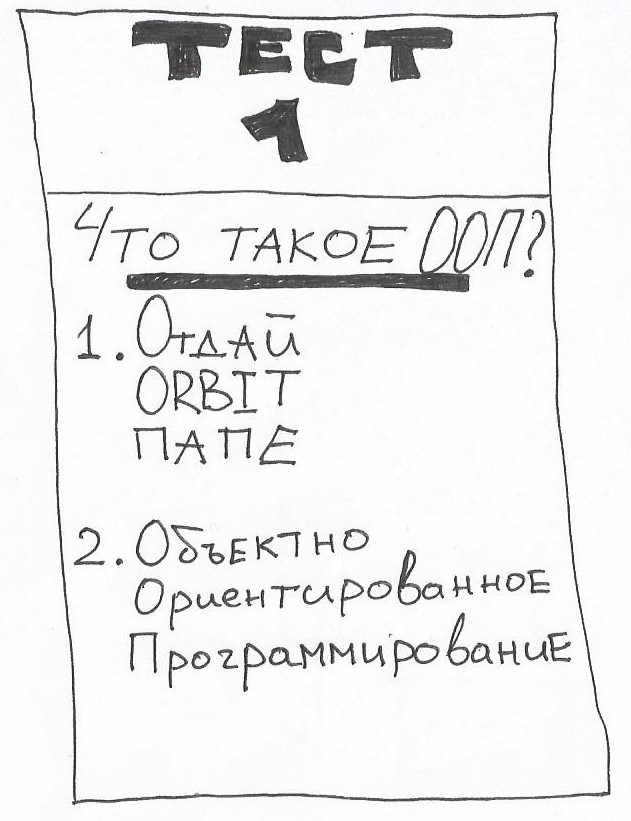 ТЕСТ
1
ЧТО ТАКОЕ ООП?
1. ОТДАЙ
ORBIT
ПАПЕ
2. ОБЪЕКТНО
ОРИЕНТИРОВАННОЕ
ПРОГРАММИРОВАНИЕ